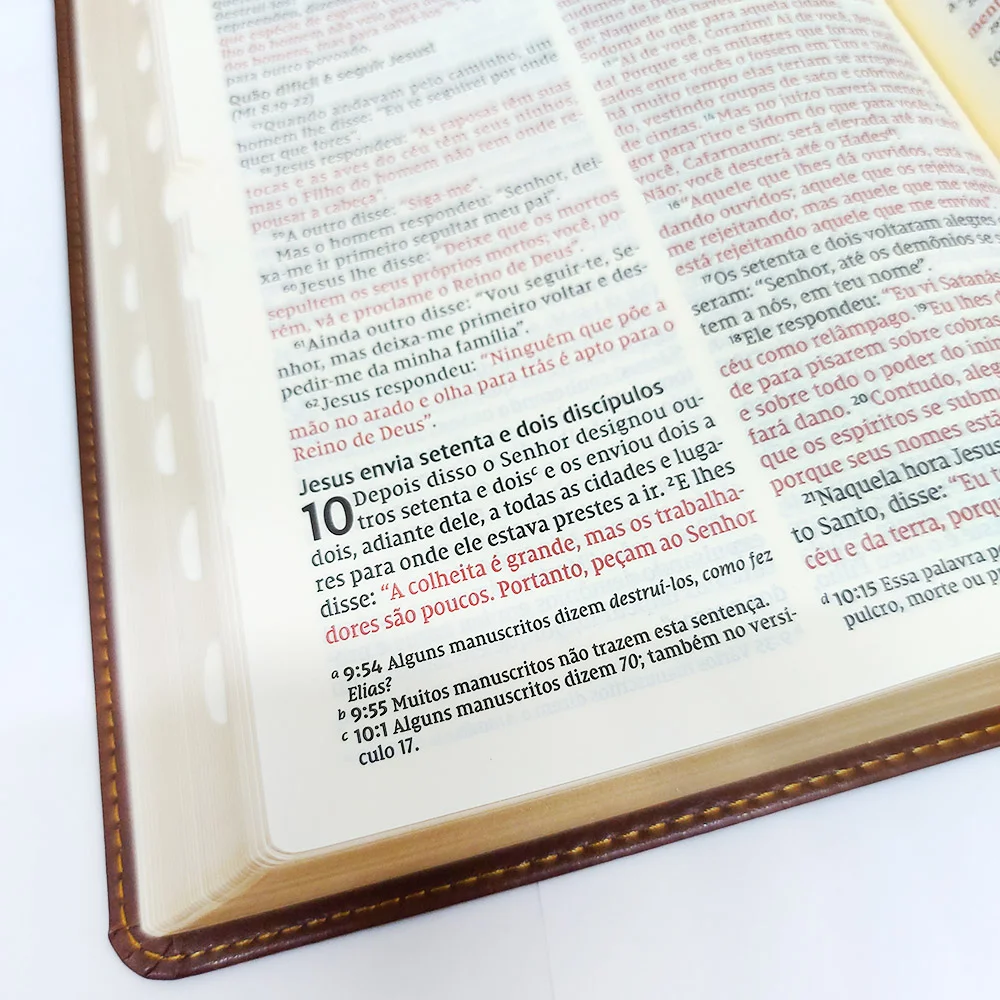 dos homens, mas para salvá-los
para outro povoado.
Quão difícil é seguir Jesus!
(Mt 8.19-22)
⁵⁷Quando andavam pelo caminho, um
homem lhe disse: "Eu te seguirei por onde
quer que fores".
⁵⁸Jesus respondeu: "As raposas têm suas
tocas e as aves do céu têm seus ninhos,
mas o Filho do homem não tem onde re-
pousar a cabeça".
⁵⁹A outro disse: "Siga-me".
Mas o homem respondeu: "Senhor, dei-
xa-me ir primeiro sepultar meu pai".
⁶⁰Jesus lhe disse: "Deixe que os mortos
sepultem os seus próprios mortos; você, po-
rém, vá e proclame o Reino de Deus".
⁶¹Ainda outro disse: "Vou seguir-te, Se-
nhor, mas deixa-me primeiro voltar e des-
pedir-me da minha família".
⁶²Jesus respondeu: "Ninguém que põe a
mão no arado e olha para trás é apto para o
Reino de Deus".
Jesus envia setenta e dois discípulos
10 Depois disso o Senhor designou ou-
tros setenta e doisᶜ e os enviou dois a
dois, adiante dele, a todas as cidades e luga-
res para onde ele estava prestes a ir. ²E lhes
disse: "A colheita é grande, mas os trabalha-
dores são poucos. Portanto, peçam ao Senhor
a 9:54 Alguns manuscritos dizem destruí-los, como fez
Elias?
b 9:55 Muitos manuscritos não trazem esta sentença.
c 10:1 Alguns manuscritos dizem 70; também no versí-
culo 17.
Sodoma do que para aquela cidade.
Ai de você, Corazim! Ai de você,
da! Porque se os milagres que foram
zados entre vocês o fossem em Tiro e Sidom,
há muito tempo elas teriam se arrepen
do, vestindo roupas de saco e cobrindo
cinzas. ¹⁴Mas no juízo haverá menor
gor para Tiro e Sidom do que para vocês.
você, Cafarnaum: será elevada até ao céu?
Não; você descerá até o Hades!
¹⁶"Aquele que lhes dá ouvidos, está me
dando ouvidos; aquele que os rejeita,
me rejeitando; mas aquele que me rejeita,
está rejeitando aquele que me enviou".
¹⁷Os setenta e dois voltaram alegres
seram: "Senhor, até os demônios se
tem a nós, em teu nome".
¹⁸Ele respondeu: "Eu vi Satanás
céu como relâmpago. ¹⁹Eu lhes
de para pisarem sobre cobras
e sobre todo o poder do inim
fará dano. ²⁰Contudo, aleg
que os espíritos se subm
porque seus nomes está
²¹Naquela hora Jesus
to Santo, disse: "Eu t
céu e da terra, porq
d 10:15 Essa palavra p
pulcro, morte ou p